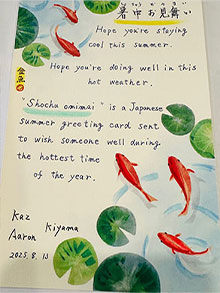 暑中お見舞い
Hope you're staying
cool this summer.
Hope you're doing well in this
hot weather.
金魚
"Shochu omimai" is a Japanese
summer greeting card sent
to wish someone well during
the hottest time
of the year.
Kaz Kiyama
Aaron
2025.8.13